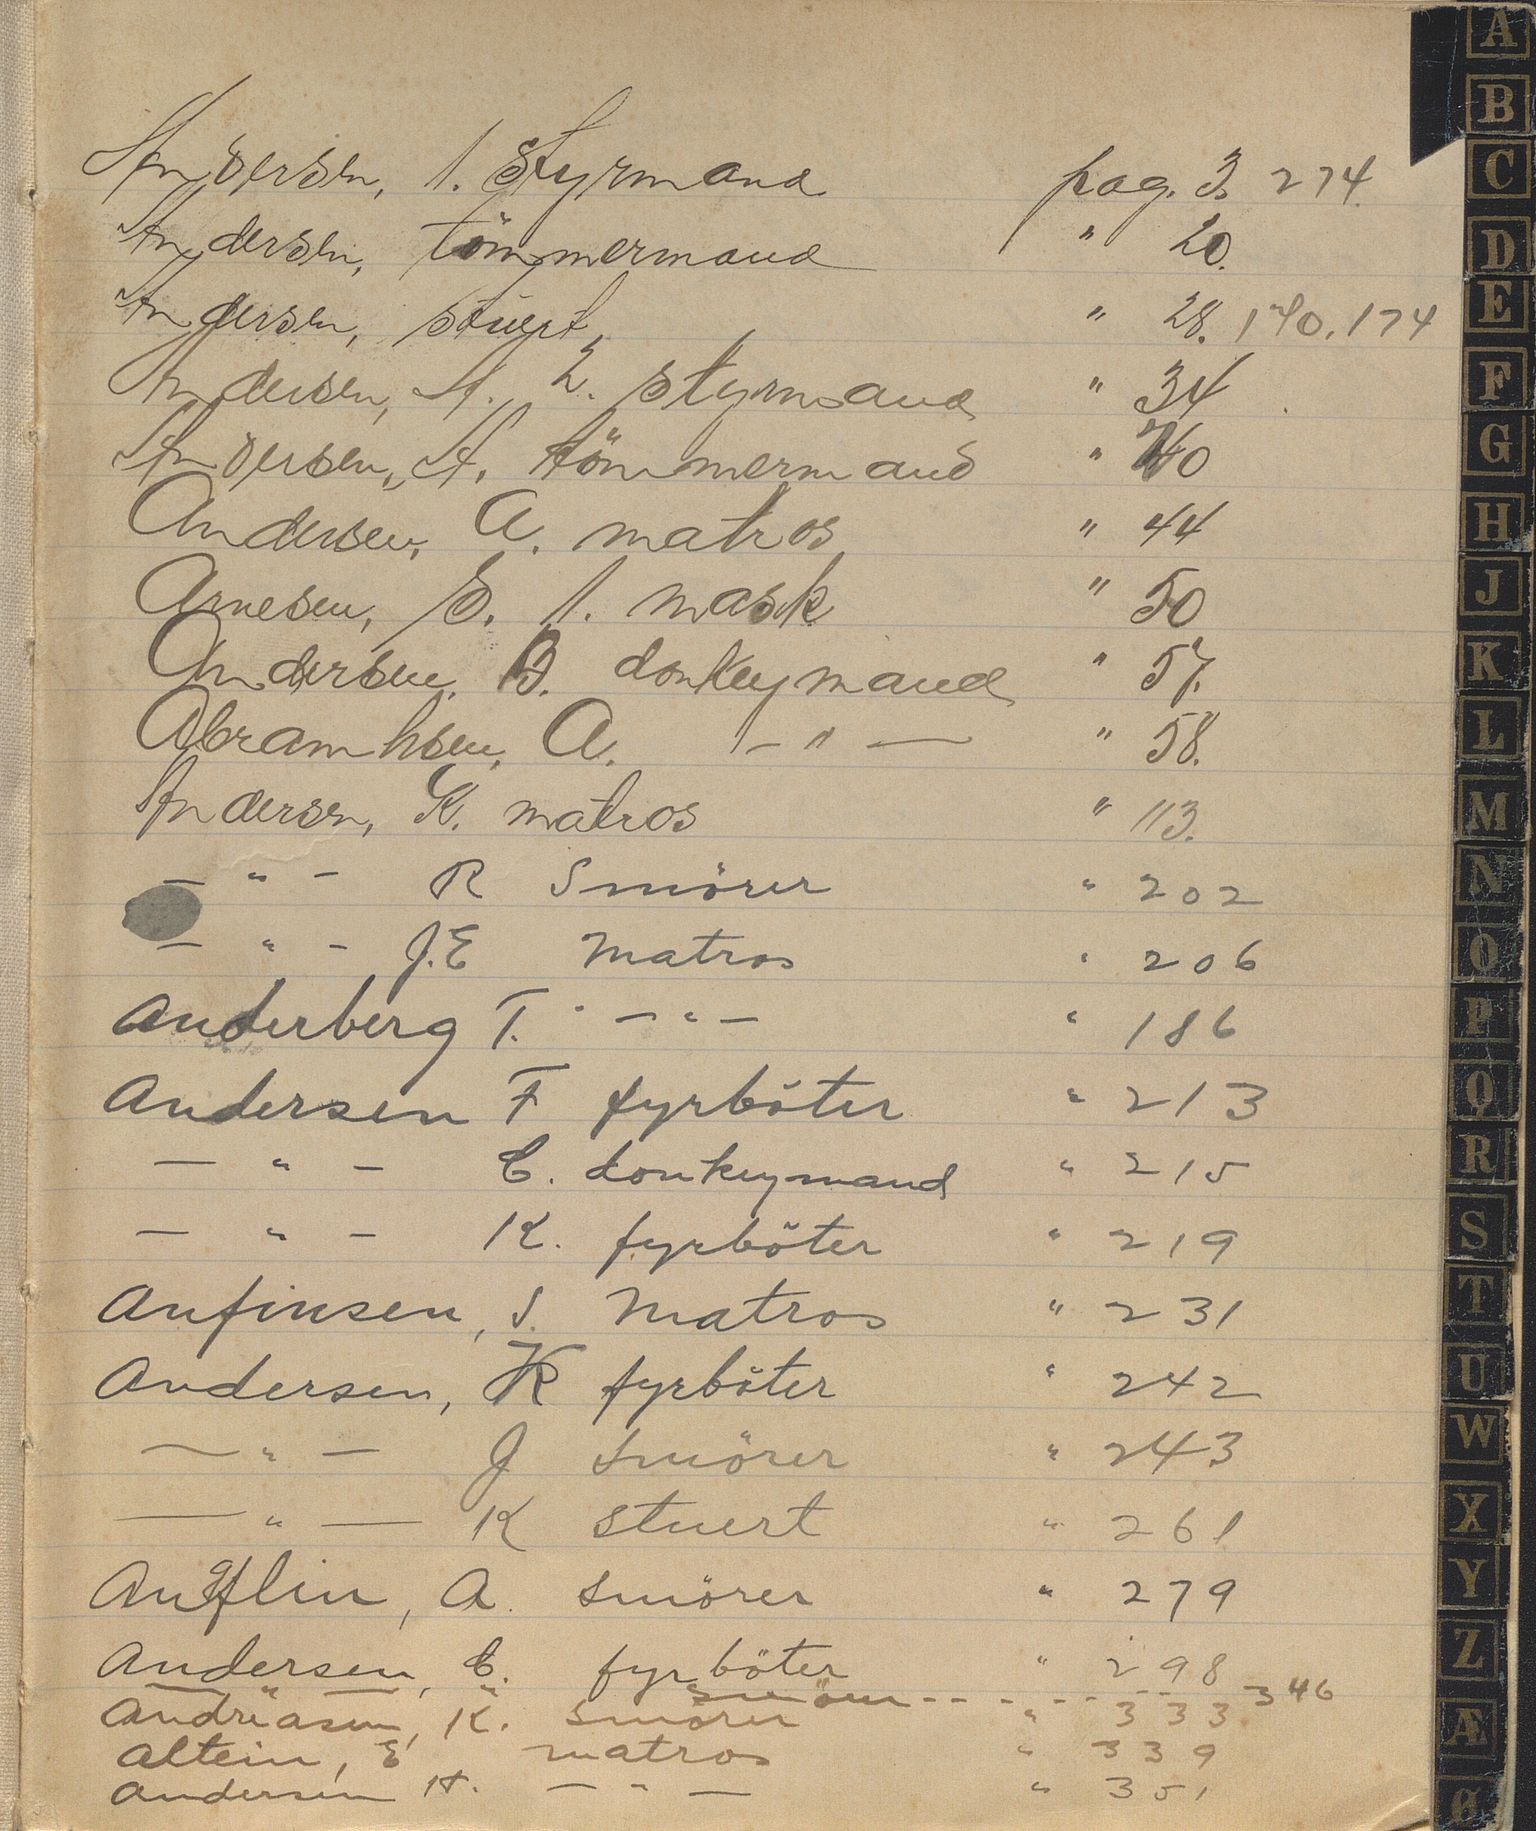 Andersen, 1. styrmand pag. 3. 274.
Andersen, tömmermand " 20.
Andersen, stuert, " 28. 140. 174
Andersen, A. 2. styrmand " 34
Andersen, A. tömmermand " 40
Andersen, A. matros " 44
Arnesen, S. 1. mask " 50
Andersen, B. donkeymand " 57.
Abramhsen, A. — " — " 58.
Andersen, K. matros " 113.
— " — R Smörer " 202
— " — J.E Matros " 206
Anderberg T. — " — " 186
Andersen F fyrböter " 213
— " — C. donkeymand " 215
— " — K. fyrböter " 219
Anfinsen, S. Matros " 231
Andersen, K fyrböter " 242
— " — J Smörer " 243
— " — K Stuert " 261
A. Smörer " 279
Andersen, C. fyrböter " 298
— " — " smörer - - - - - - - 346
Andreasen, K. Smörer " 333
Altein, E matros " 339
Andersen H. — " — " 351
A
B
C
D
E
F
G
H
J
K
L
M
N
O
P
Q
R
S
T
U
W
X
Y
Z
Æ
Ø